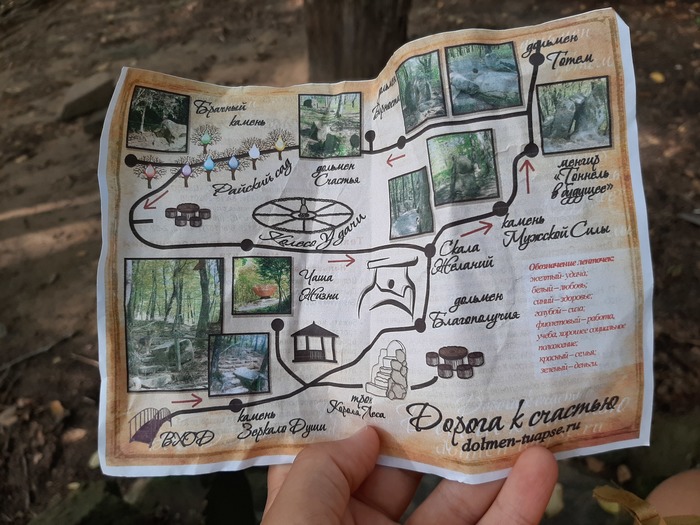 дольмен
Тотем
Брачный
камень
дольмен
Счастья
Райский сад
менгир
«Тоннель
в будущее»
камень
Мужской Силы
Колесо Удачи
Скала
Желаний
Чаша
Жизни
дольмен
Благополучия
Обозначение ленточек:
желтый - удача,
белый – любовь,
синий – здоровье,
голубой – сила,
фиолетовый – работа,
учеба, хорошее социальное
положение,
красный – семья,
зеленый – деньги.
трон
Короля Леса
камень
Зеркало Души
ВХОД
Дорога к счастью
dolmen-tuapse.ru